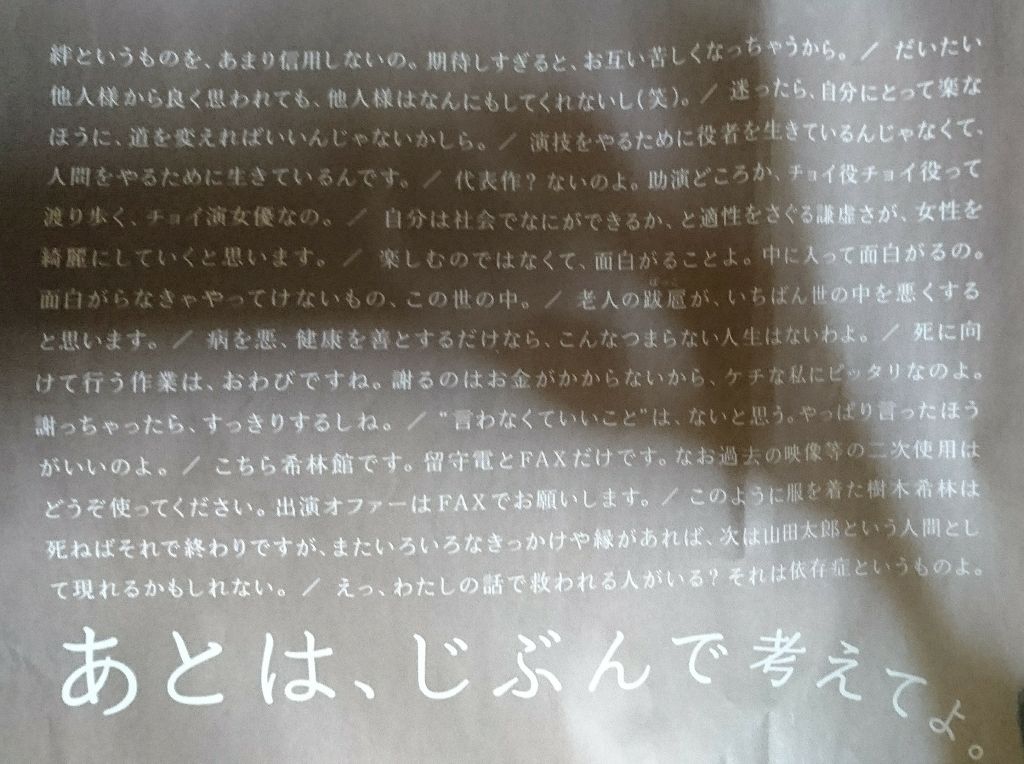 絆というものを、あまり信用しないの。期待しすぎると、お互い苦しくなっちゃうから。／ だいたい
他人様から良く思われても、他人様はなんにもしてくれないし(笑)。／ 迷ったら、自分にとって楽な
ほうに、道を変えればいいんじゃないかしら。／ 演技をやるために役者を生きているんじゃなくて、
人間をやるために生きているんです。／ 代表作？ ないのよ。助演どころか、チョイ役チョイ役って
渡り歩く、チョイ演女優なの。／ 自分は社会でなにができるか、と適性をさぐる謙虚さが、女性を
綺麗にしていくと思います。／ 楽しむのではなくて、面白がることよ。中に入って面白がるの。
面白がらなきゃやってけないもの、この世の中。／ 老人の跋扈が、いちばん世の中を悪くする
と思います。／ 病を悪、健康を善とするだけなら、こんなつまらない人生はないわよ。／ 死に向
けて行う作業は、おわびですね。謝るのはお金がかからないから、ケチな私にピッタリなのよ。
謝っちゃったら、すっきりするしね。／ “言わなくていいこと”は、ないと思う。やっぱり言ったほう
がいいのよ。／ こちら希林館です。留守電とFAXだけです。なお過去の映像等の二次使用は
どうぞ使ってください。出演オファーはFAXでお願いします。／ このように服を着た樹木希林は
死ねばそれで終わりですが、またいろいろなきっかけや縁があれば、次は山田太郎という人間とし
て現れるかもしれない。／ えっ、わたしの話で救われる人がいる？ それは依存症というものよ。
あとは、じぶんで考えてよ。